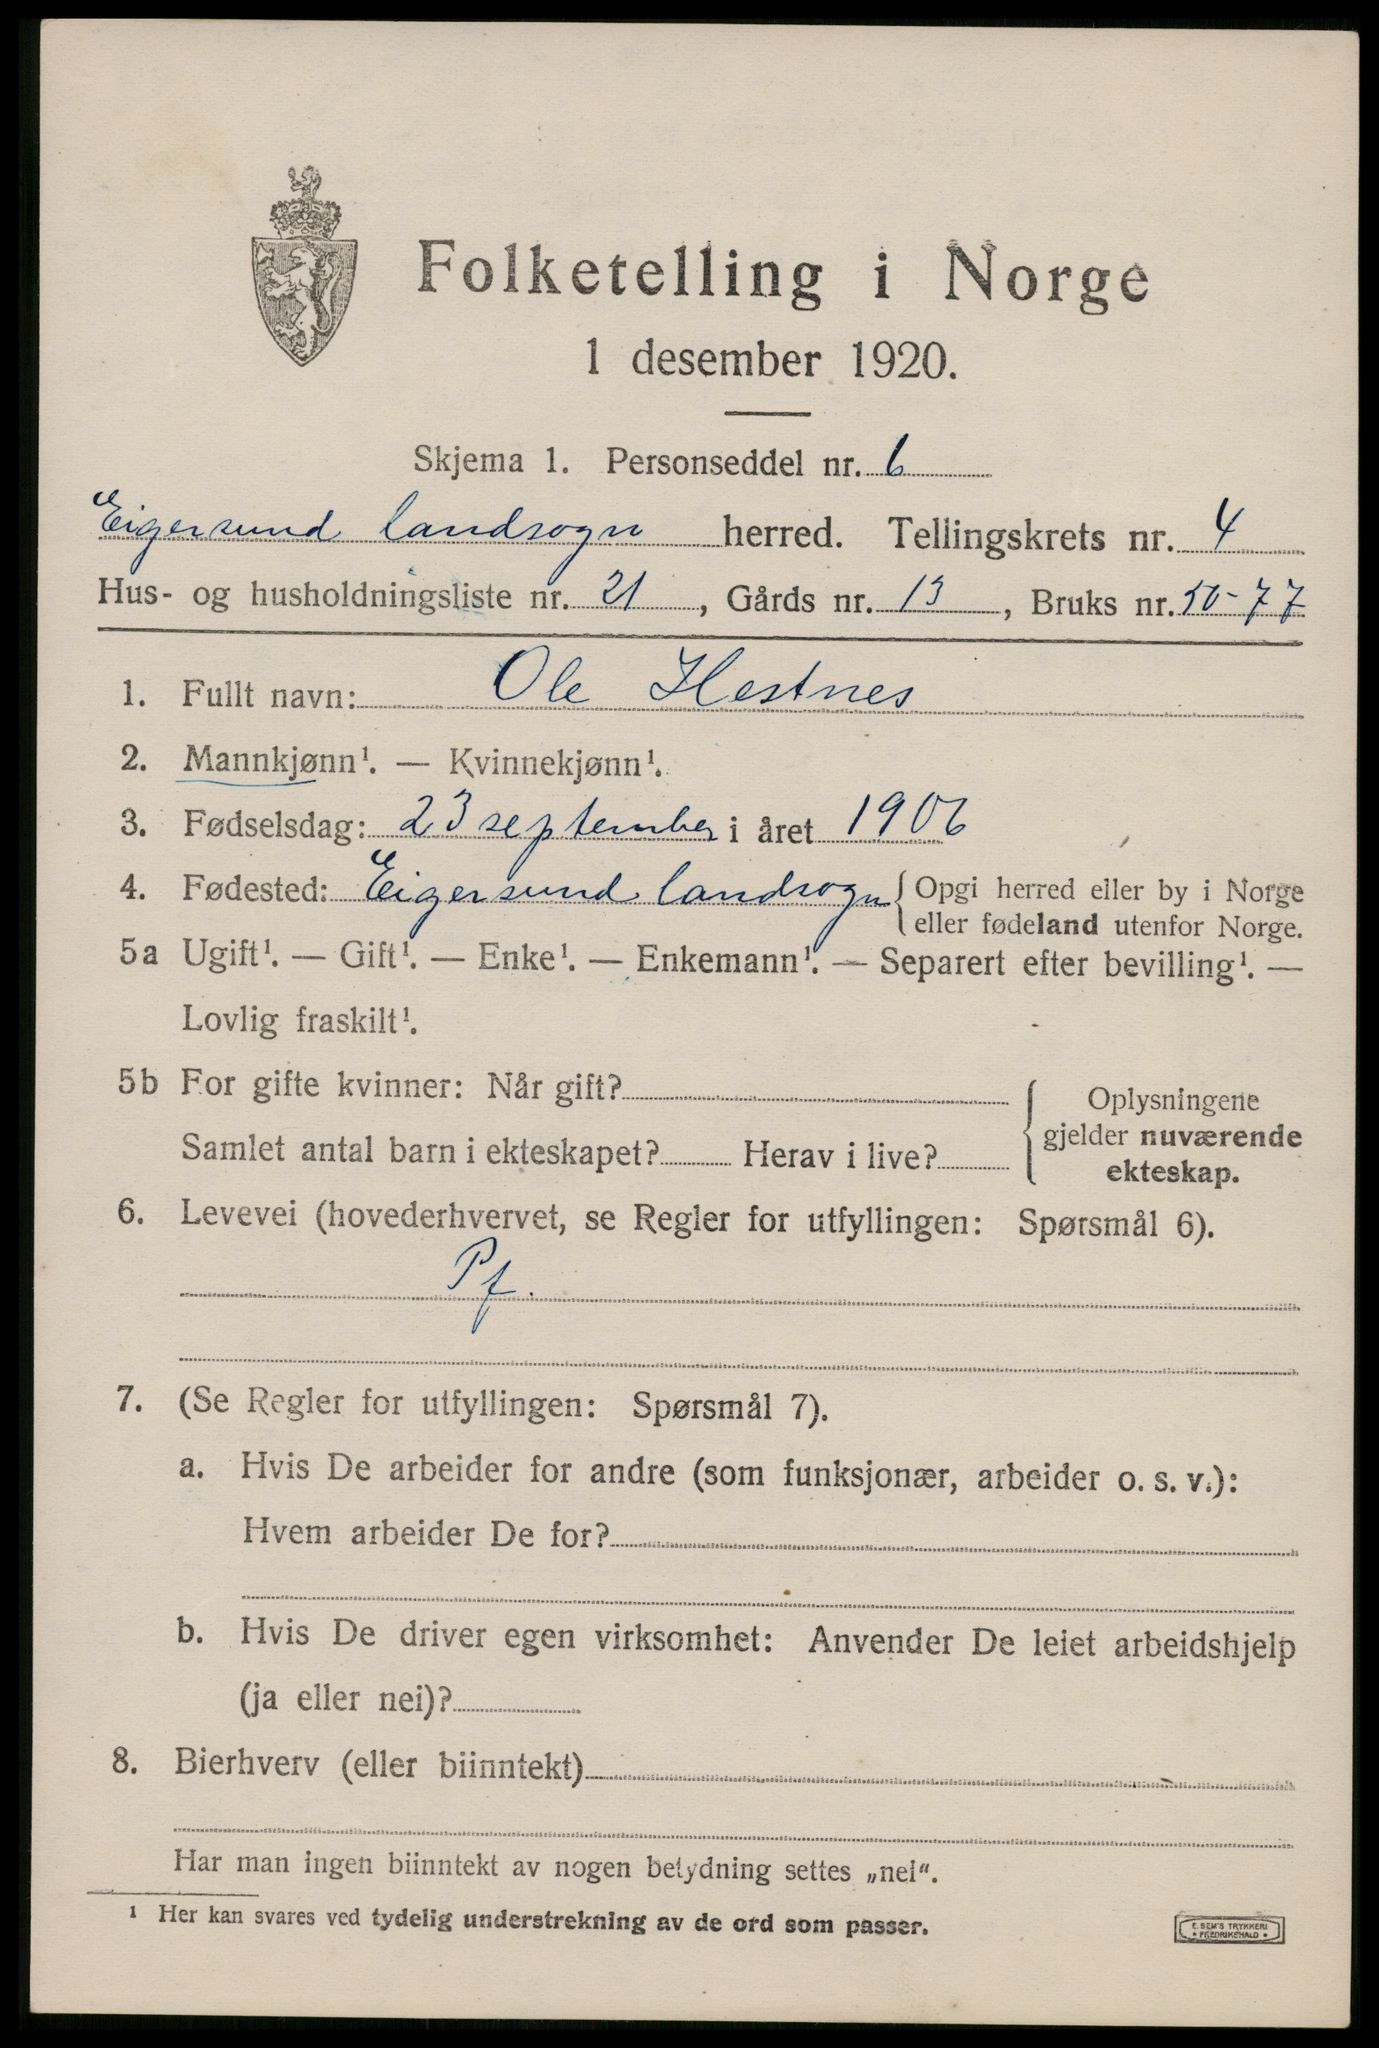 Folketelling i Norge
1 desember 1920.
Skjema 1. Personseddel nr. 6
Eigersund landsogn herred. Tellingskrets nr. 4
Hus- og husholdningsliste nr. 21, Gårds nr. 13, Bruks nr. 50-77
1. Fullt navn: Ole Hestnes
2. Mannkjønn¹. — Kvinnekjønn¹.
3. Fødselsdag: 23 september i året 1906
4. Fødested: Eigersund landsogn { Opgi herred eller by i Norge
eller fødeland utenfor Norge.
5a Ugift¹. — Gift¹. — Enke¹. — Enkemann¹. — Separert efter bevilling¹. —
Lovlig fraskilt¹.
5b For gifte kvinner: Når gift? { Oplysningene
Samlet antal barn i ekteskapet? Herav i live? gjelder nuværende
ekteskap.
6. Levevei (hovederhvervet, se Regler for utfyllingen: Spørsmål 6).
Pf.
7. (Se Regler for utfyllingen: Spørsmål 7).
a. Hvis De arbeider for andre (som funksjonær, arbeider o. s. v.):
Hvem arbeider De for?
b. Hvis De driver egen virksomhet: Anvender De leiet arbeidshjelp
(ja eller nei)?
8. Bierhverv (eller biinntekt)
Har man ingen biinntekt av nogen betydning settes „nei“.
¹ Her kan svares ved tydelig understrekning av de ord som passer.
E. SEM'S TRYKKERI
* FREDRIKSHALD *